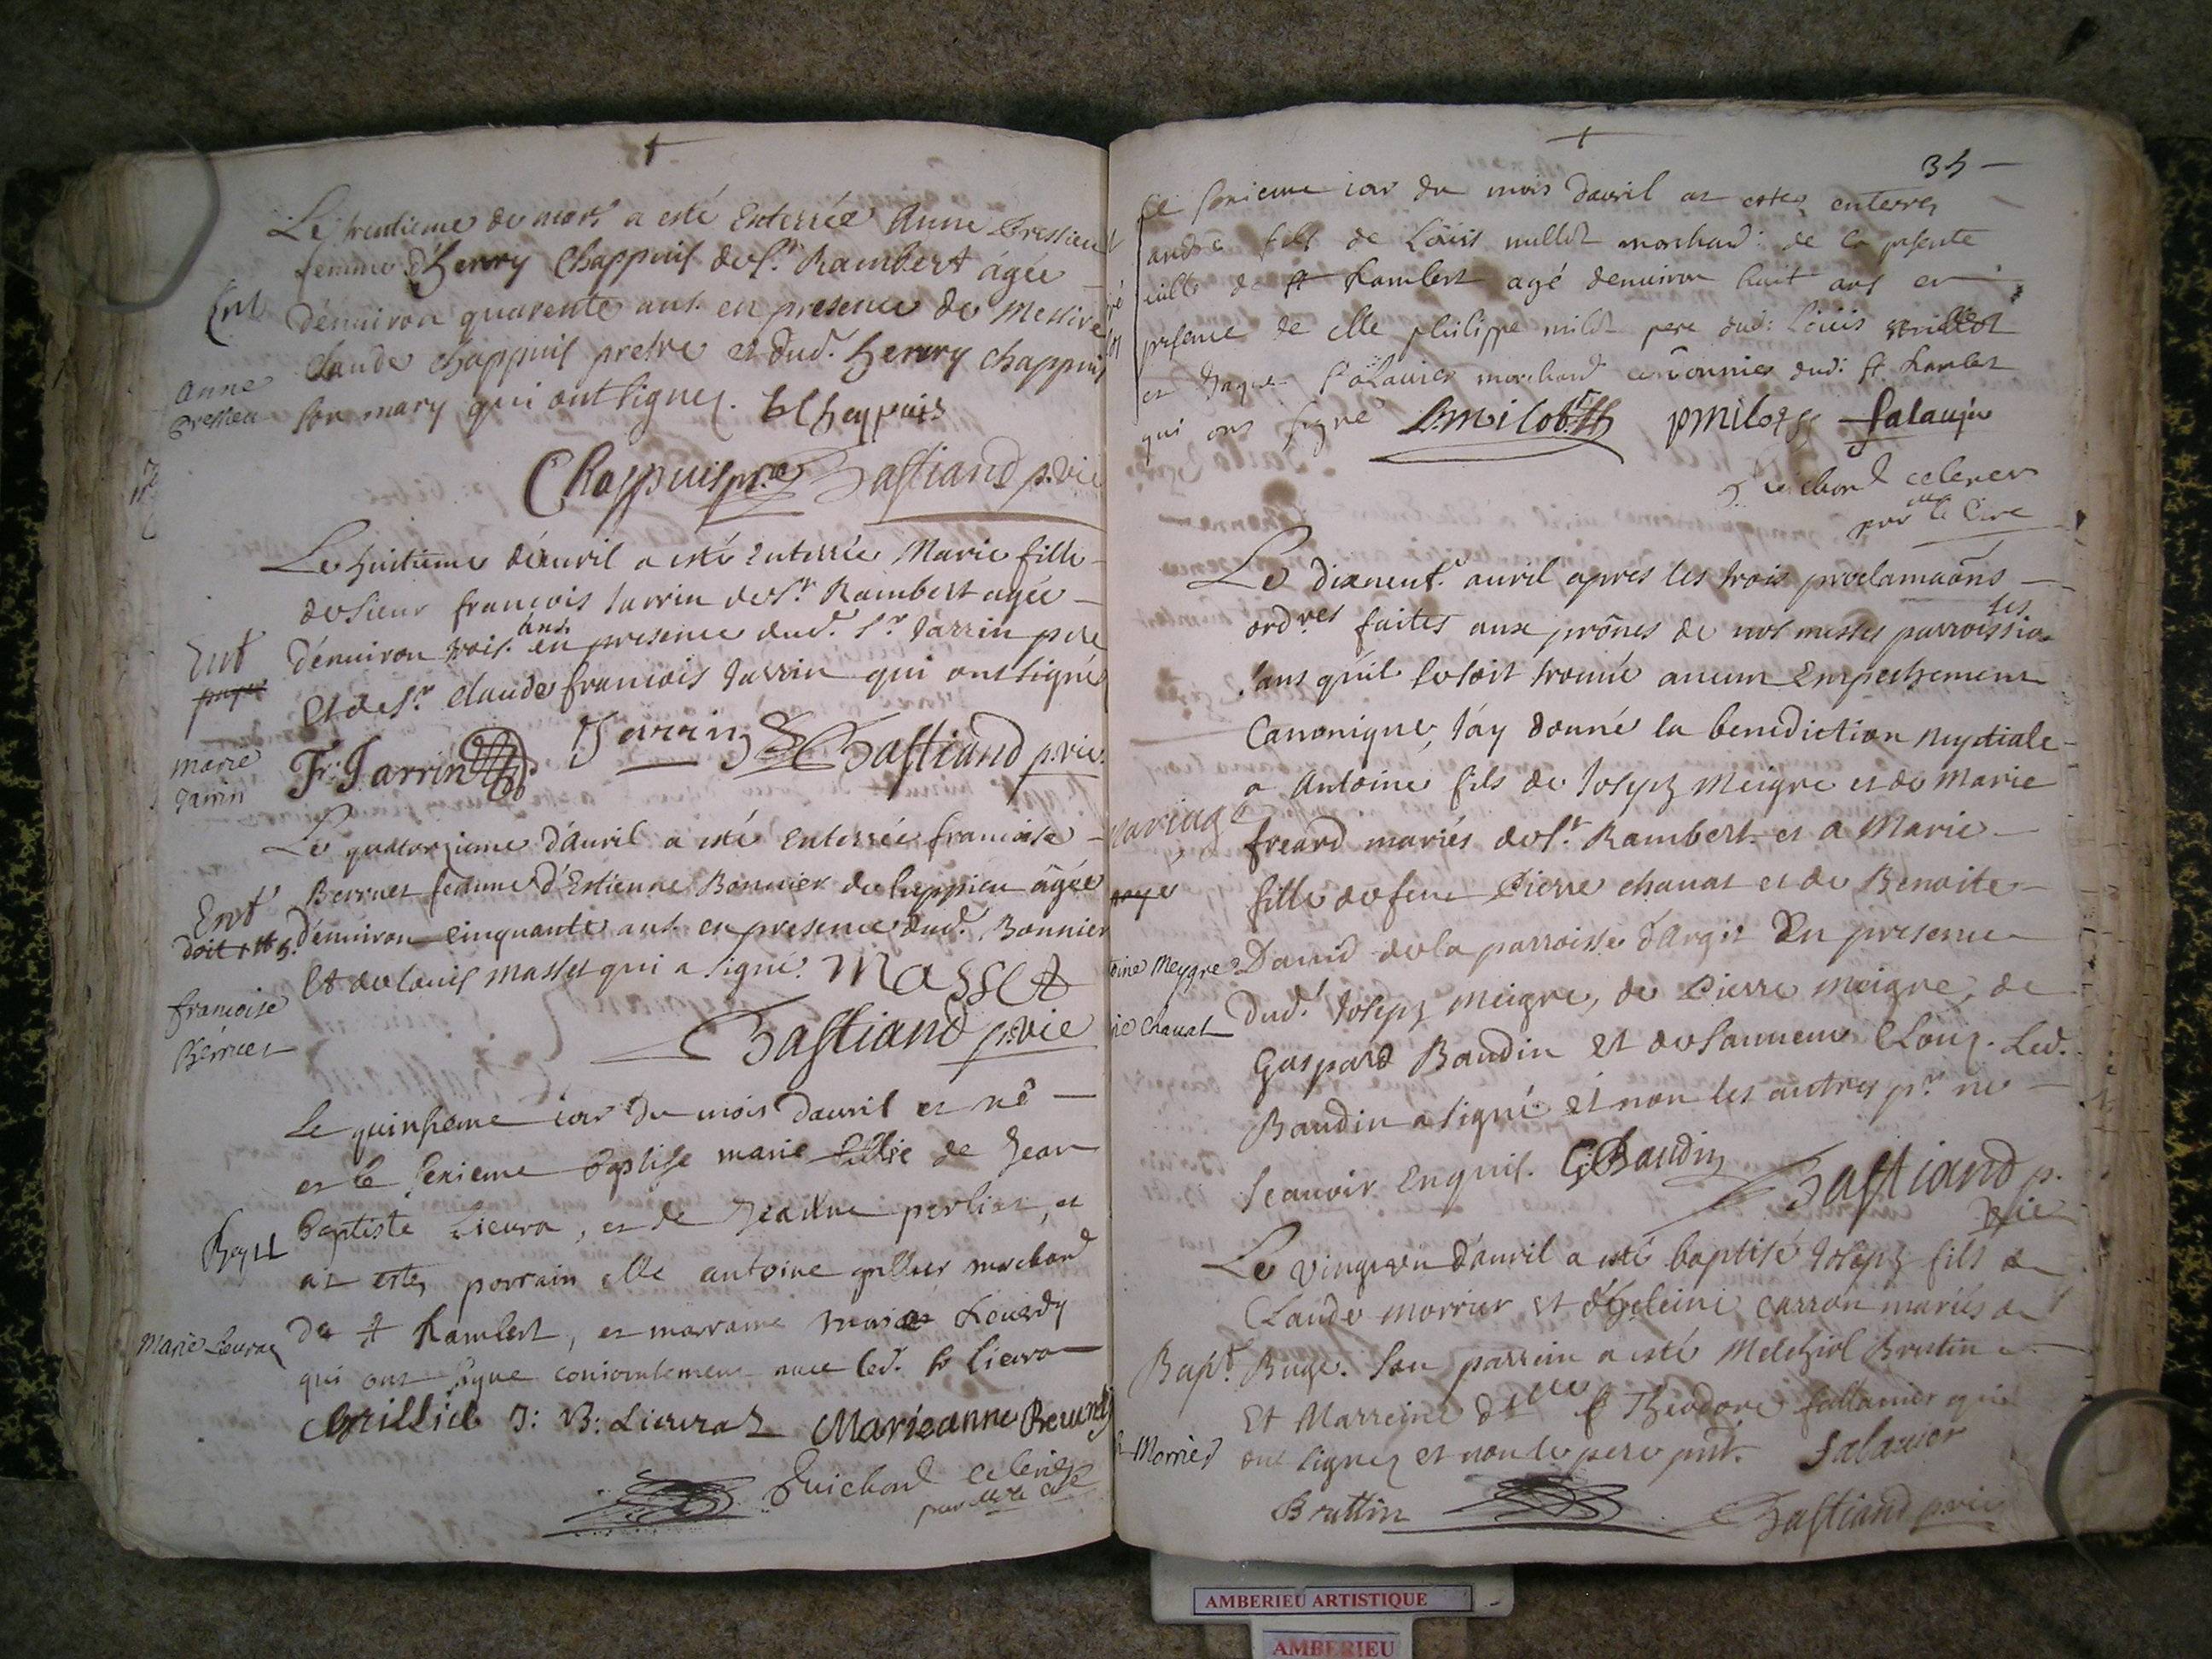 Le trentieme de mars a esté Enterrée Anne Pressieu
femme d'Henry Chappuis de St. Rambert agée
Ent
d'enuiron quarente ans. en presence de Messire
Claude Chappuis prestre et dud. henry Chappuis
Anne
Pressieu
son mary qui ont signez. hChappuis
Chappuis pre Bastiand p. vic
Le huitieme d'auril a esté enterrée Marie fille
de sieur francois Jarrin de St. Rambert agée
Ent
d'enuiron trois ans en presence dud. Sr. Jarrin pere
paye
Et de Sr. Claude francois Jarrin qui ont signé
Marie
Jarrin
Fr: Jarrin Jarrin Bastiand p. vic.
Le quatorzieme d'auril a esté enterrée francoise
Ent
Berruet femme d'Estienne Bonnier de Luppieu âgée
doit
d'enuiron cinquante ans. en presence dud. Bonnier
Et de Louis Masset qui a signé. Masset
francoise
Berruet
Bastiand p. vic
Le quinseme iour du mois dauril et né
et le sexieme baptise marie fillie de Jean
Bapt
baptiste Lieura, et de Jeanne perlier, et
at estez parrain Mr antoine grillier marchand
Marie Leuraz
de St Rambert, et marraine Reuerdy
qui ont signe coniointement auec led. Sr Lieura
J: B: Lieuraz Marieanne Reuerdy
Guichard
pour Mr le curé
34
Le sexieme iour du mois dauril at estez enterrez
andré fils de Louis millot marchand: de la psente
uille de St Rambert agé denuiron huit ans en
presence de Mr philippe milot pere dud: Louis millot
et Jaque salauier marchand dud: St. Rambert
qui ont signé L: milot pmilot salauier
Guichard
pour Mr le Cure
Le dixneuf.e auril apres les trois proclamaôns
ord.res faites aux prônes de nos messes parroissiales
sans qu'il se soit trouué aucun Empechement
Canonique, J'ay donné la benediction nuptiale
a Antoine fils de Joseph Meigre et de Marie
Mariage
freard mariés de St. Rambert. et a Marie
paye
fille de feu Pierre chauat et de Benoite
Dauid de la parroisse d'Argis En presence
oine Meygre
dud.t Joseph Meigre, de Pierre meigre, de
ie Chauat
Gaspard Baudin et de Led.
Baudin a signé et non les autres pr. ne
Scauoir Enquis. G Baudin Bastiand p.
vic
Le vingt un d'auril a esté baptisé Joseph fils de
Claude morrier et d'heleine carron mariés de
Bapt.
Buge. Son parrein a esté Melchiol Brettin
Et Marreine dlle Theodore sallauier qui
Morrier
ont signez et non le pere Salauier
Brettin Bastiand p. vic
AMBERIEU ARTISTIQUE
AMBERIEU